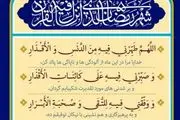 شهر رمضان الذی انزل فیه القرآن
اَللّهُمَّ طَهِّرْنی فیهِ مِنَ الدَّنَسِ وَ الْأَقْذارِ
خدایا مرا در این ماه از آلودگی ها و ناپاکی ها پاک کن.
وَ صَبِّرْنی فیهِ عَلی کائِناتِ الْأَقْدارِ
و بر شدنی های مورد تقدیرت شکیبایم گردان.
وَ وَفِّقْنی فیهِ لِلتُّقی وَ صُحْبَةِ الْأَبْرارِ
و به پرهیزگاری و هم نشینی با نیکان توفیقم ده.